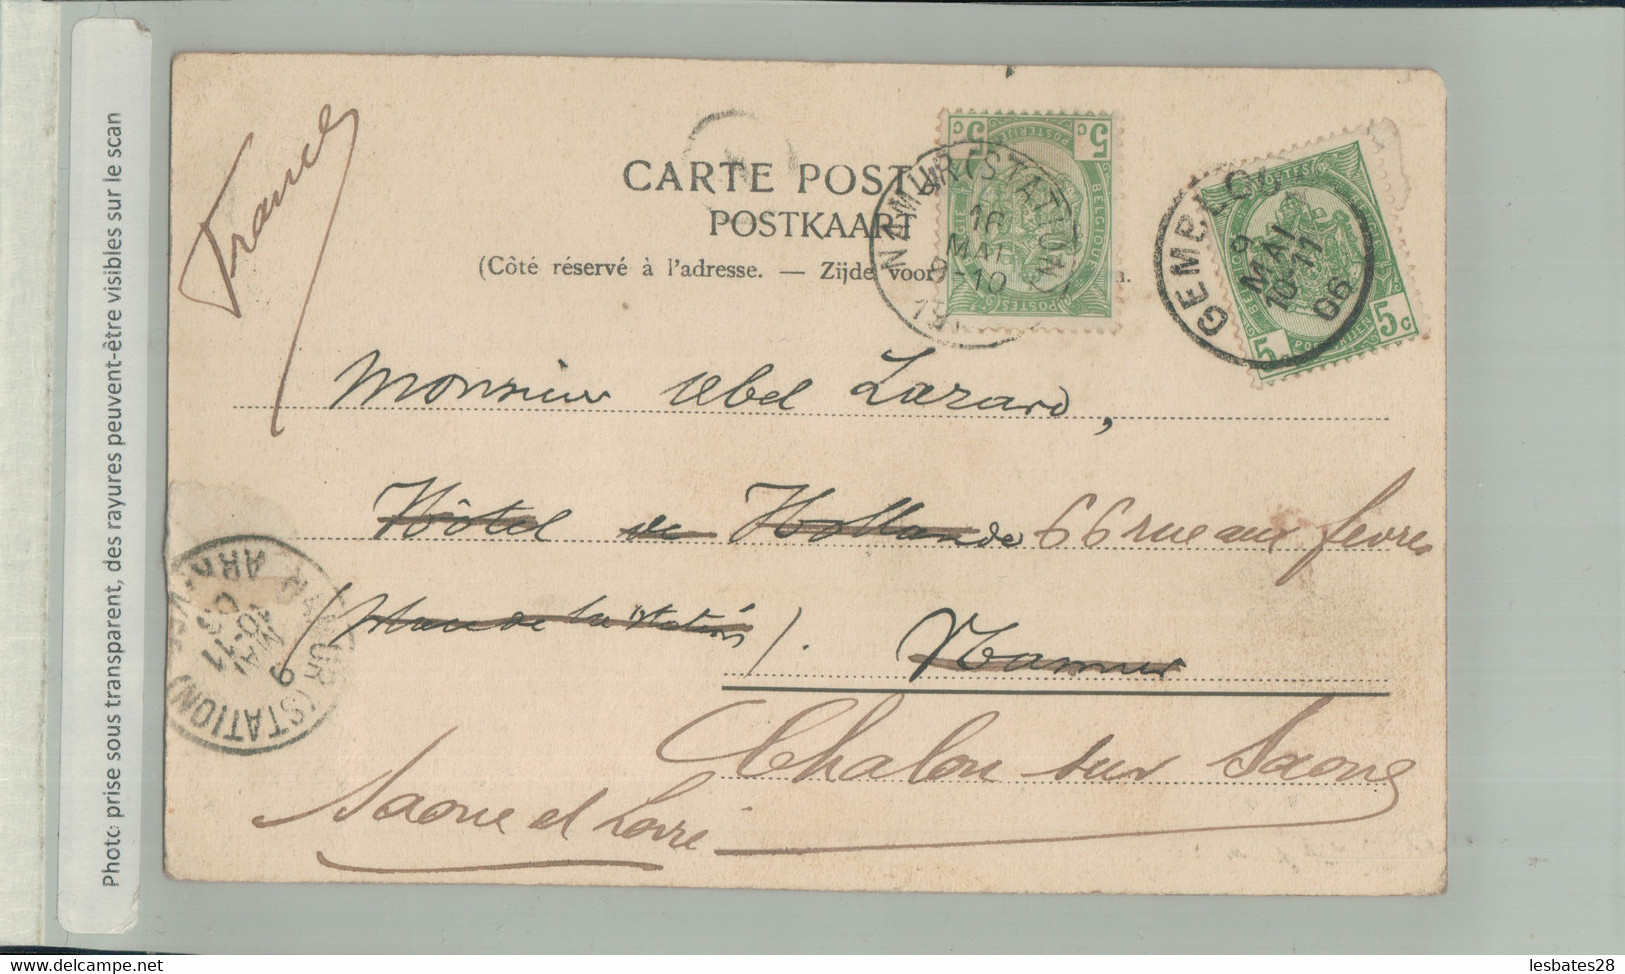 Photo prise sous transparent, des rayures peuvent-être visibles sur le scan
France
CARTE POST
POSTKAART
(Côté réservé à l'adresse. — Zijde voor
n.
5 c 5 c
POSTERIJEN
BELGIQUE
POSTES
NAMUR (STATION)
16
MAI
9-10
19
GEMBLOU
9
MAI
10-11
06
POSTES
5 c
5
Monsieur Abel Lazard,
Hôtel de Hollande 66 rue aux fevres
(Place de la Station). Namur
Chalon sur Saone
Saone et Loire
NAMUR (STATION)
9
MAI
10-11
06
lesbates28